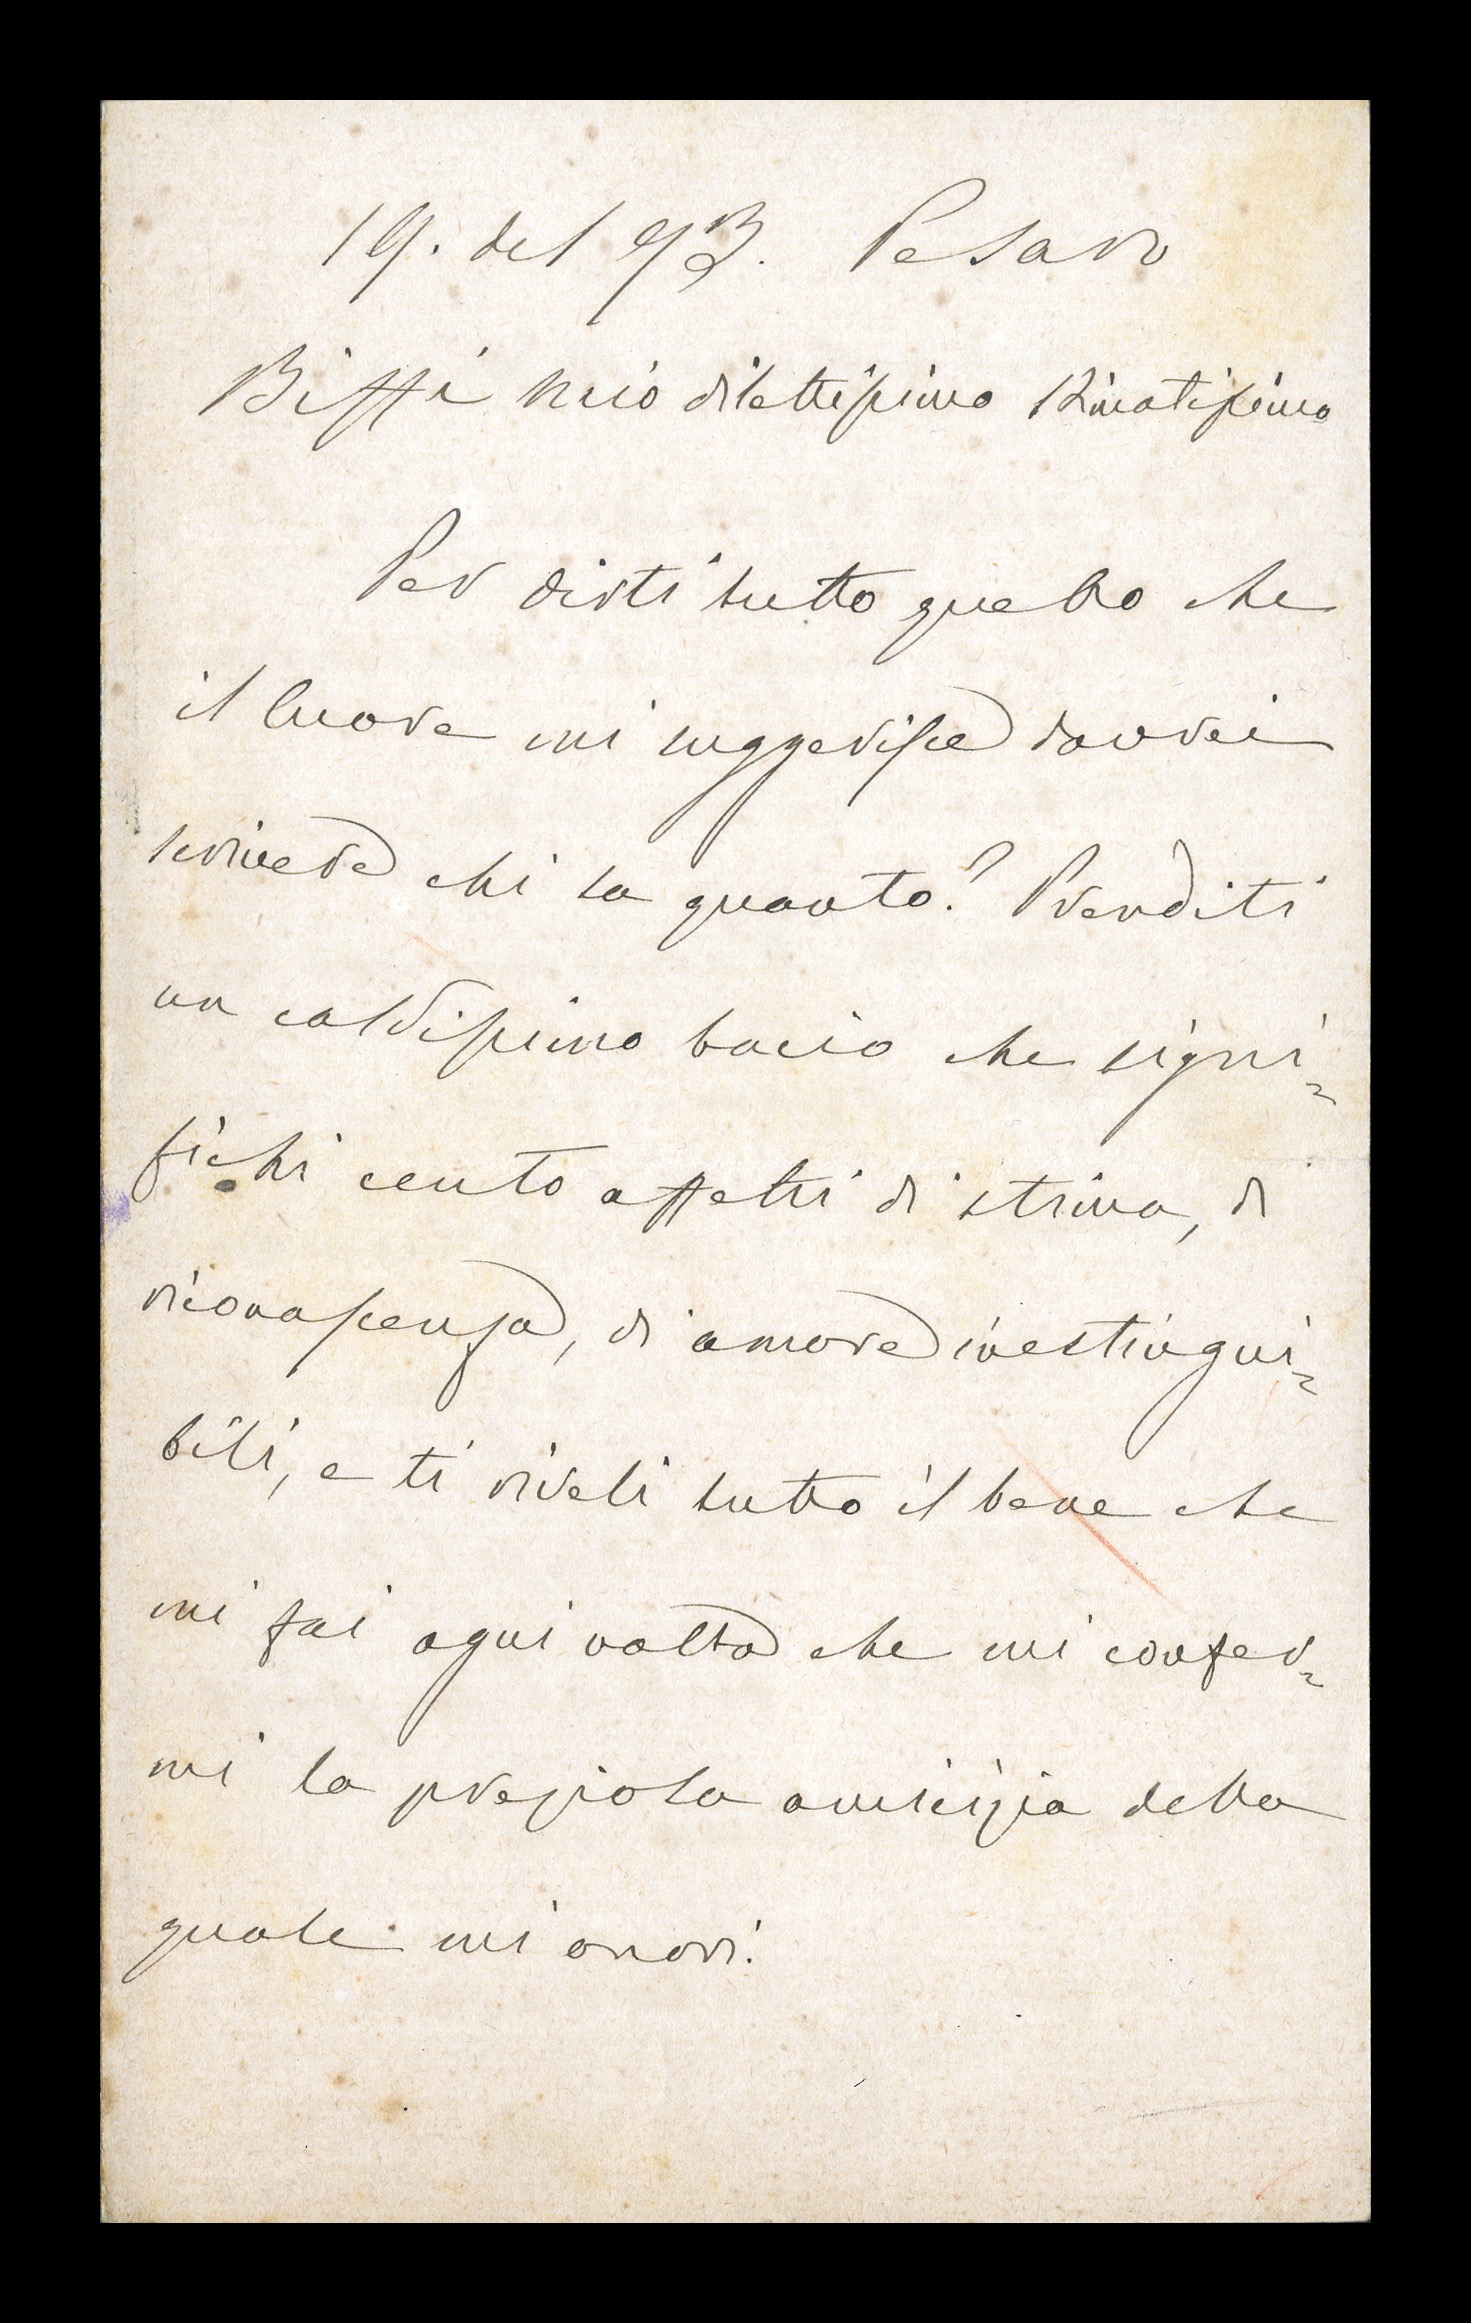 19. del 93. Pesaro
Biffi mio dilettissimo Stimatissimo
Per dirti tutto quello che
il Cuore mi suggerisce dovrei
scrivere chi sa quanto? Prenditi
un caldissimo bacio che signi=
fichi cento affetti di stima, di
riconoscenza, di amore inestingui=
bili, e ti riveli tutto il bene che
mi fai ogni volta che mi confer=
mi la preziosa amicizia della
quale mi onori.